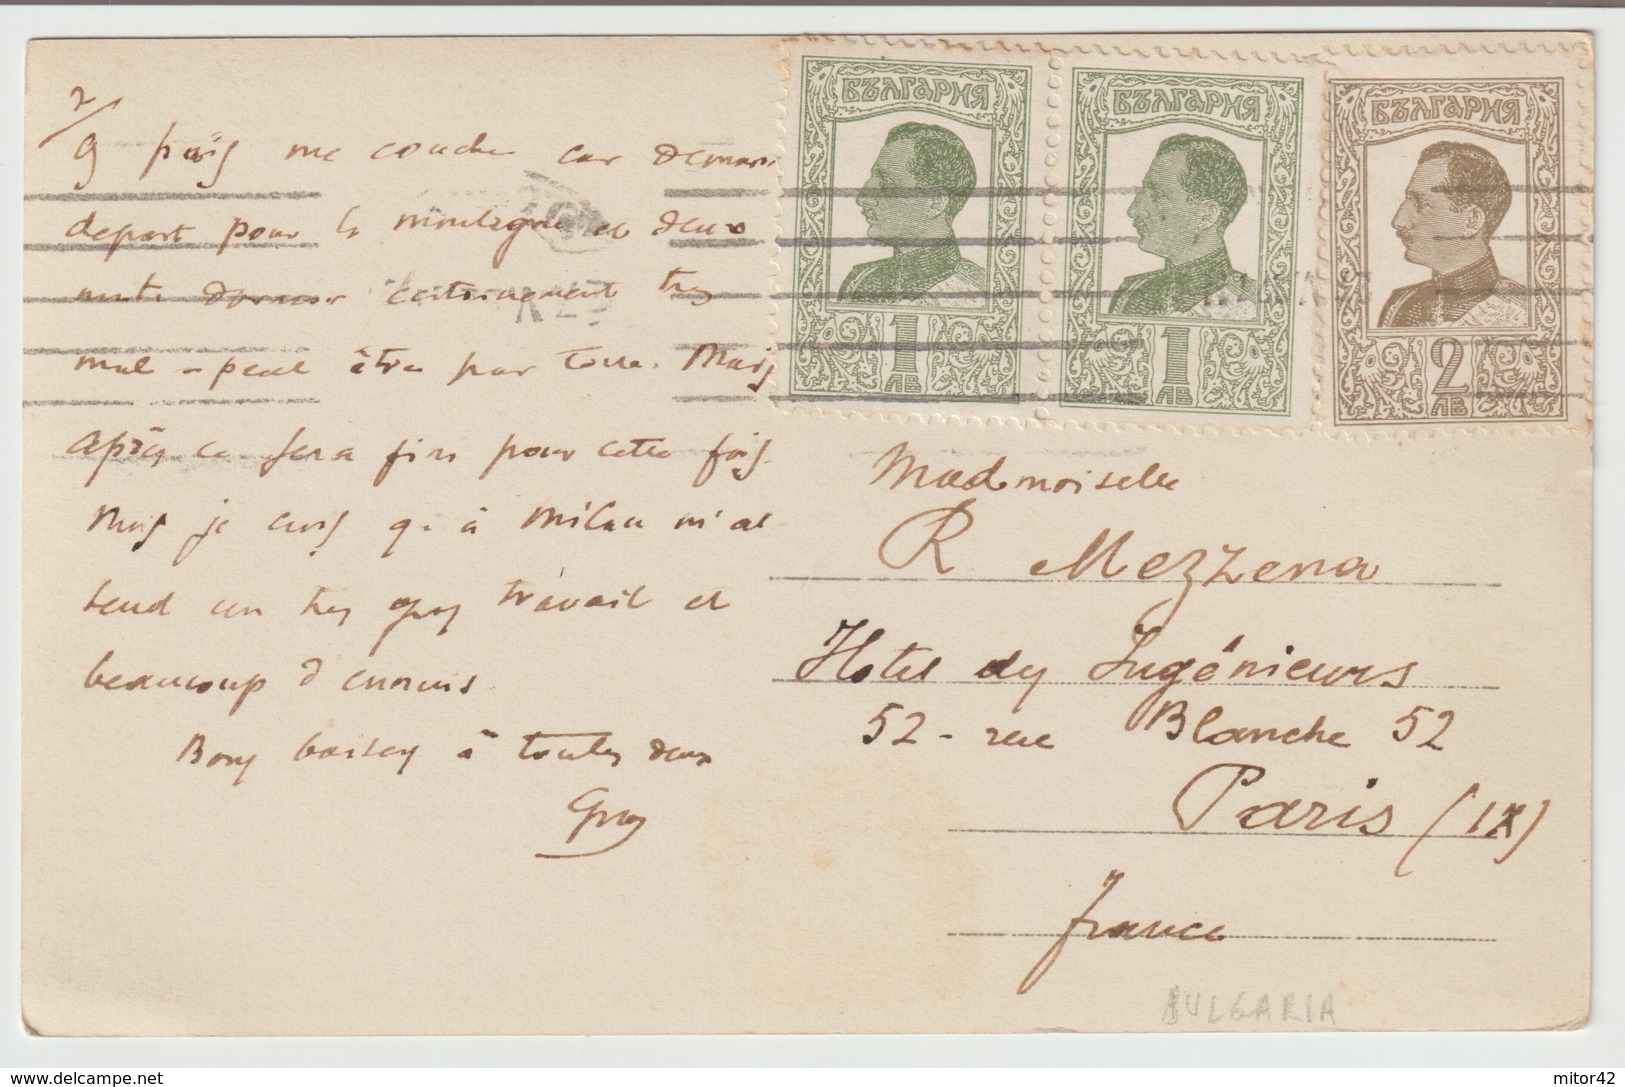 2/
g puis me couche car demain
depart pour la montagne et deux
nuits dormir certainement tres
mal - peut être par terre. Mais
après ce sera fini pour cette fois.
Mais je crois qu à Milan m'at
tend un tres gros travail et
beaucoup d ennuis.
Bons baisers à toutes deux
БЪЛГАРИЯ
1
ЛВ
БЪЛГАРИЯ
1
ЛВ
БЪЛГАРИЯ
2
ЛВ
Mademoiselle
R Mezzena
Hotel des Ingénieurs
52 - rue Blanche 52
Paris (IX)
France
BULGARIA
www.delcampe.net
mitor42